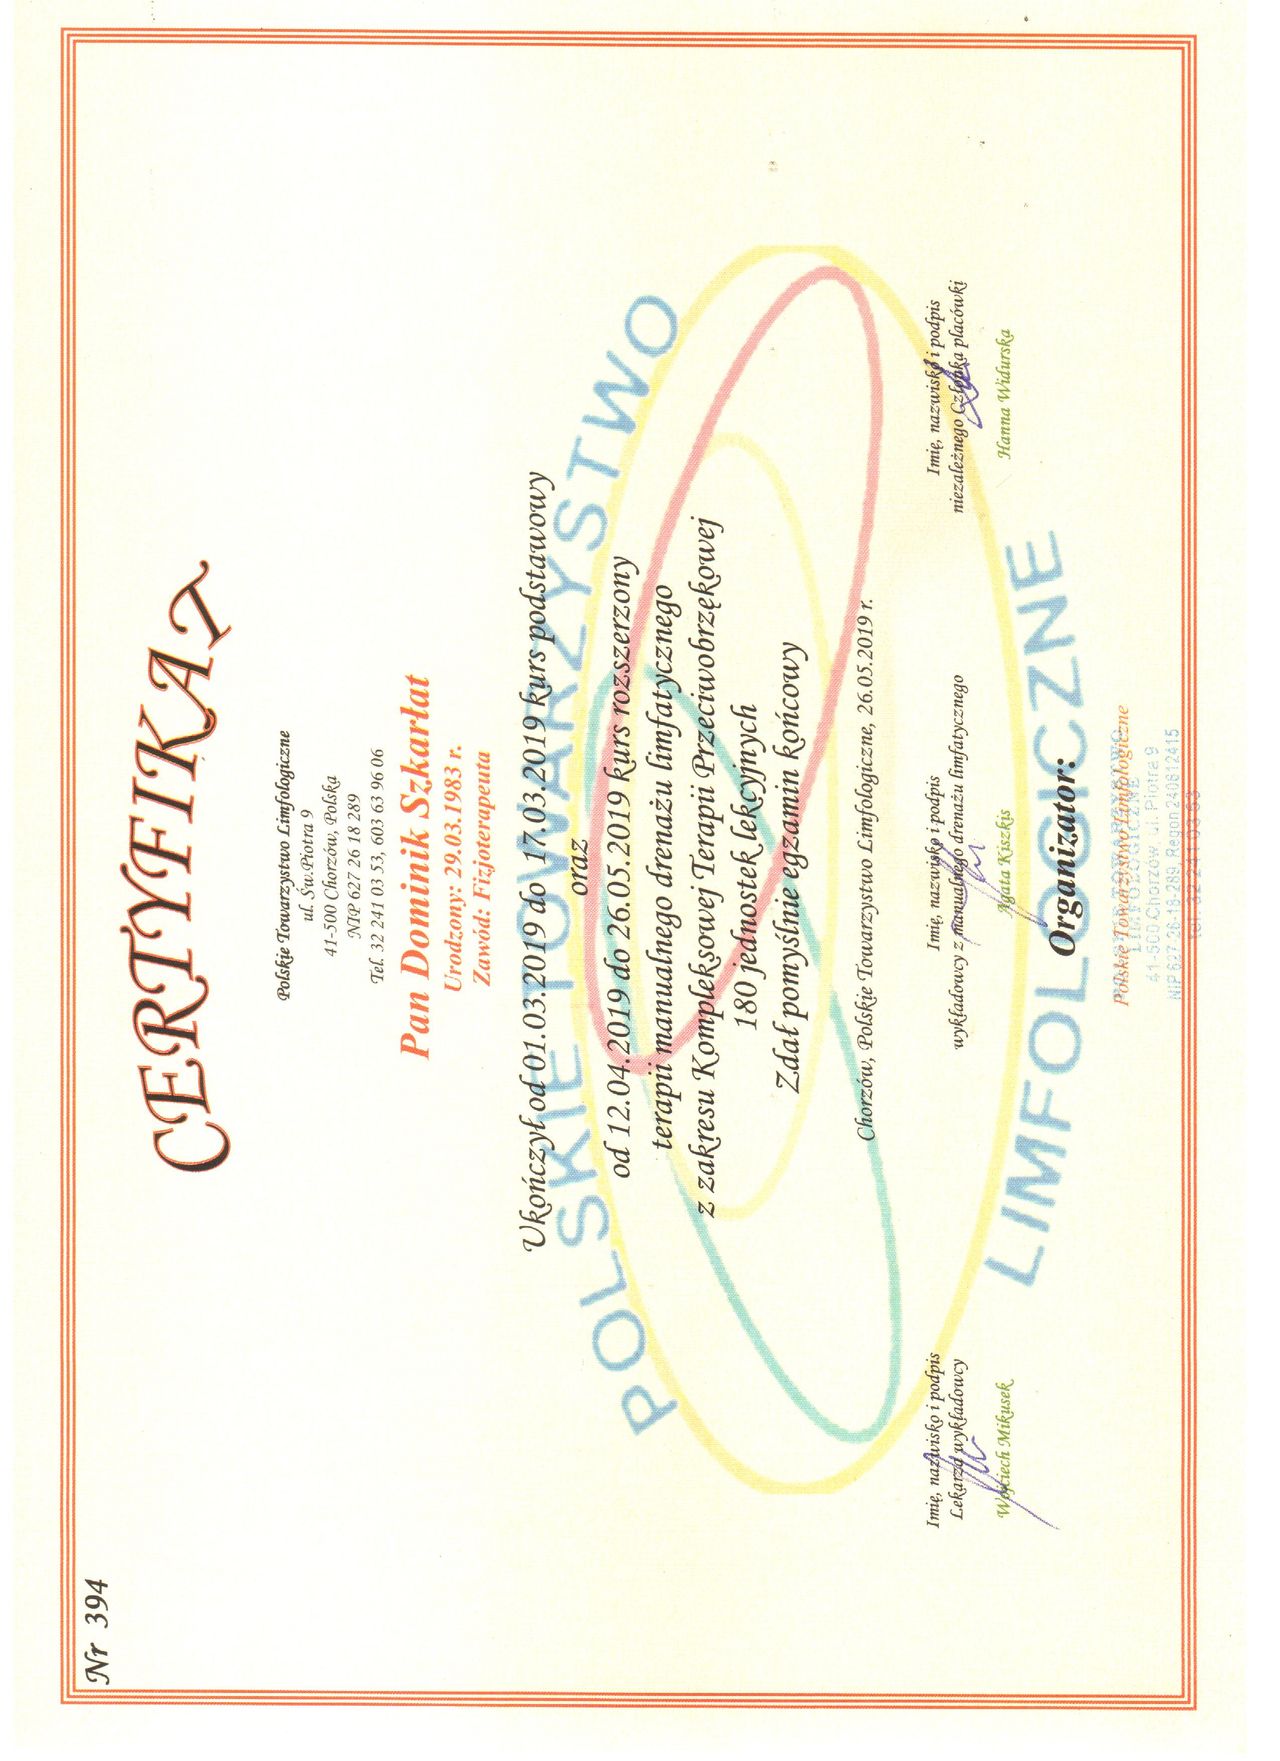 Nr 394
CERTYFIKAT
Polskie Towarzystwo Limfologiczne
ul. Św.Piotra 9
41-500 Chorzów, Polska
NIP 627 26 18 289
Tel. 32 241 03 53, 603 63 96 06
Pan Dominik Szkarłat
Urodzony: 29.03.1983 r.
Zawód: Fizjoterapeuta
POLSKIE TOWARZYSTWO
Ukończył od 01.03.2019 do 17.03.2019 kurs podstawowy
oraz
od 12.04.2019 do 26.05.2019 kurs rozszerzony
terapii manualnego drenażu limfatycznego
z zakresu Kompleksowej Terapii Przeciwobrzękowej
180 jednostek lekcyjnych
Zdał pomyślnie egzamin końcowy
Chorzów, Polskie Towarzystwo Limfologiczne, 26.05.2019 r.
Imię, nazwisko i podpis
Lekarza wykładowcy
Wojciech Mikusek
Imię, nazwisko i podpis
wykładowcy z manualnego drenażu limfatycznego
Agata Kiszkis
Imię, nazwisko i podpis
niezależnego Członka placówki
Hanna Widurska
LIMFOLOGICZNE
Organizator:
Polskie Towarzystwo Limfologiczne
POLSKIE TOWARZYSTWO
LIMFOLOGICZNE
41-500 Chorzów, ul. Piotra 9
NIP 627-26-18-289, Regon 240612415
tel. 32 241 03 53